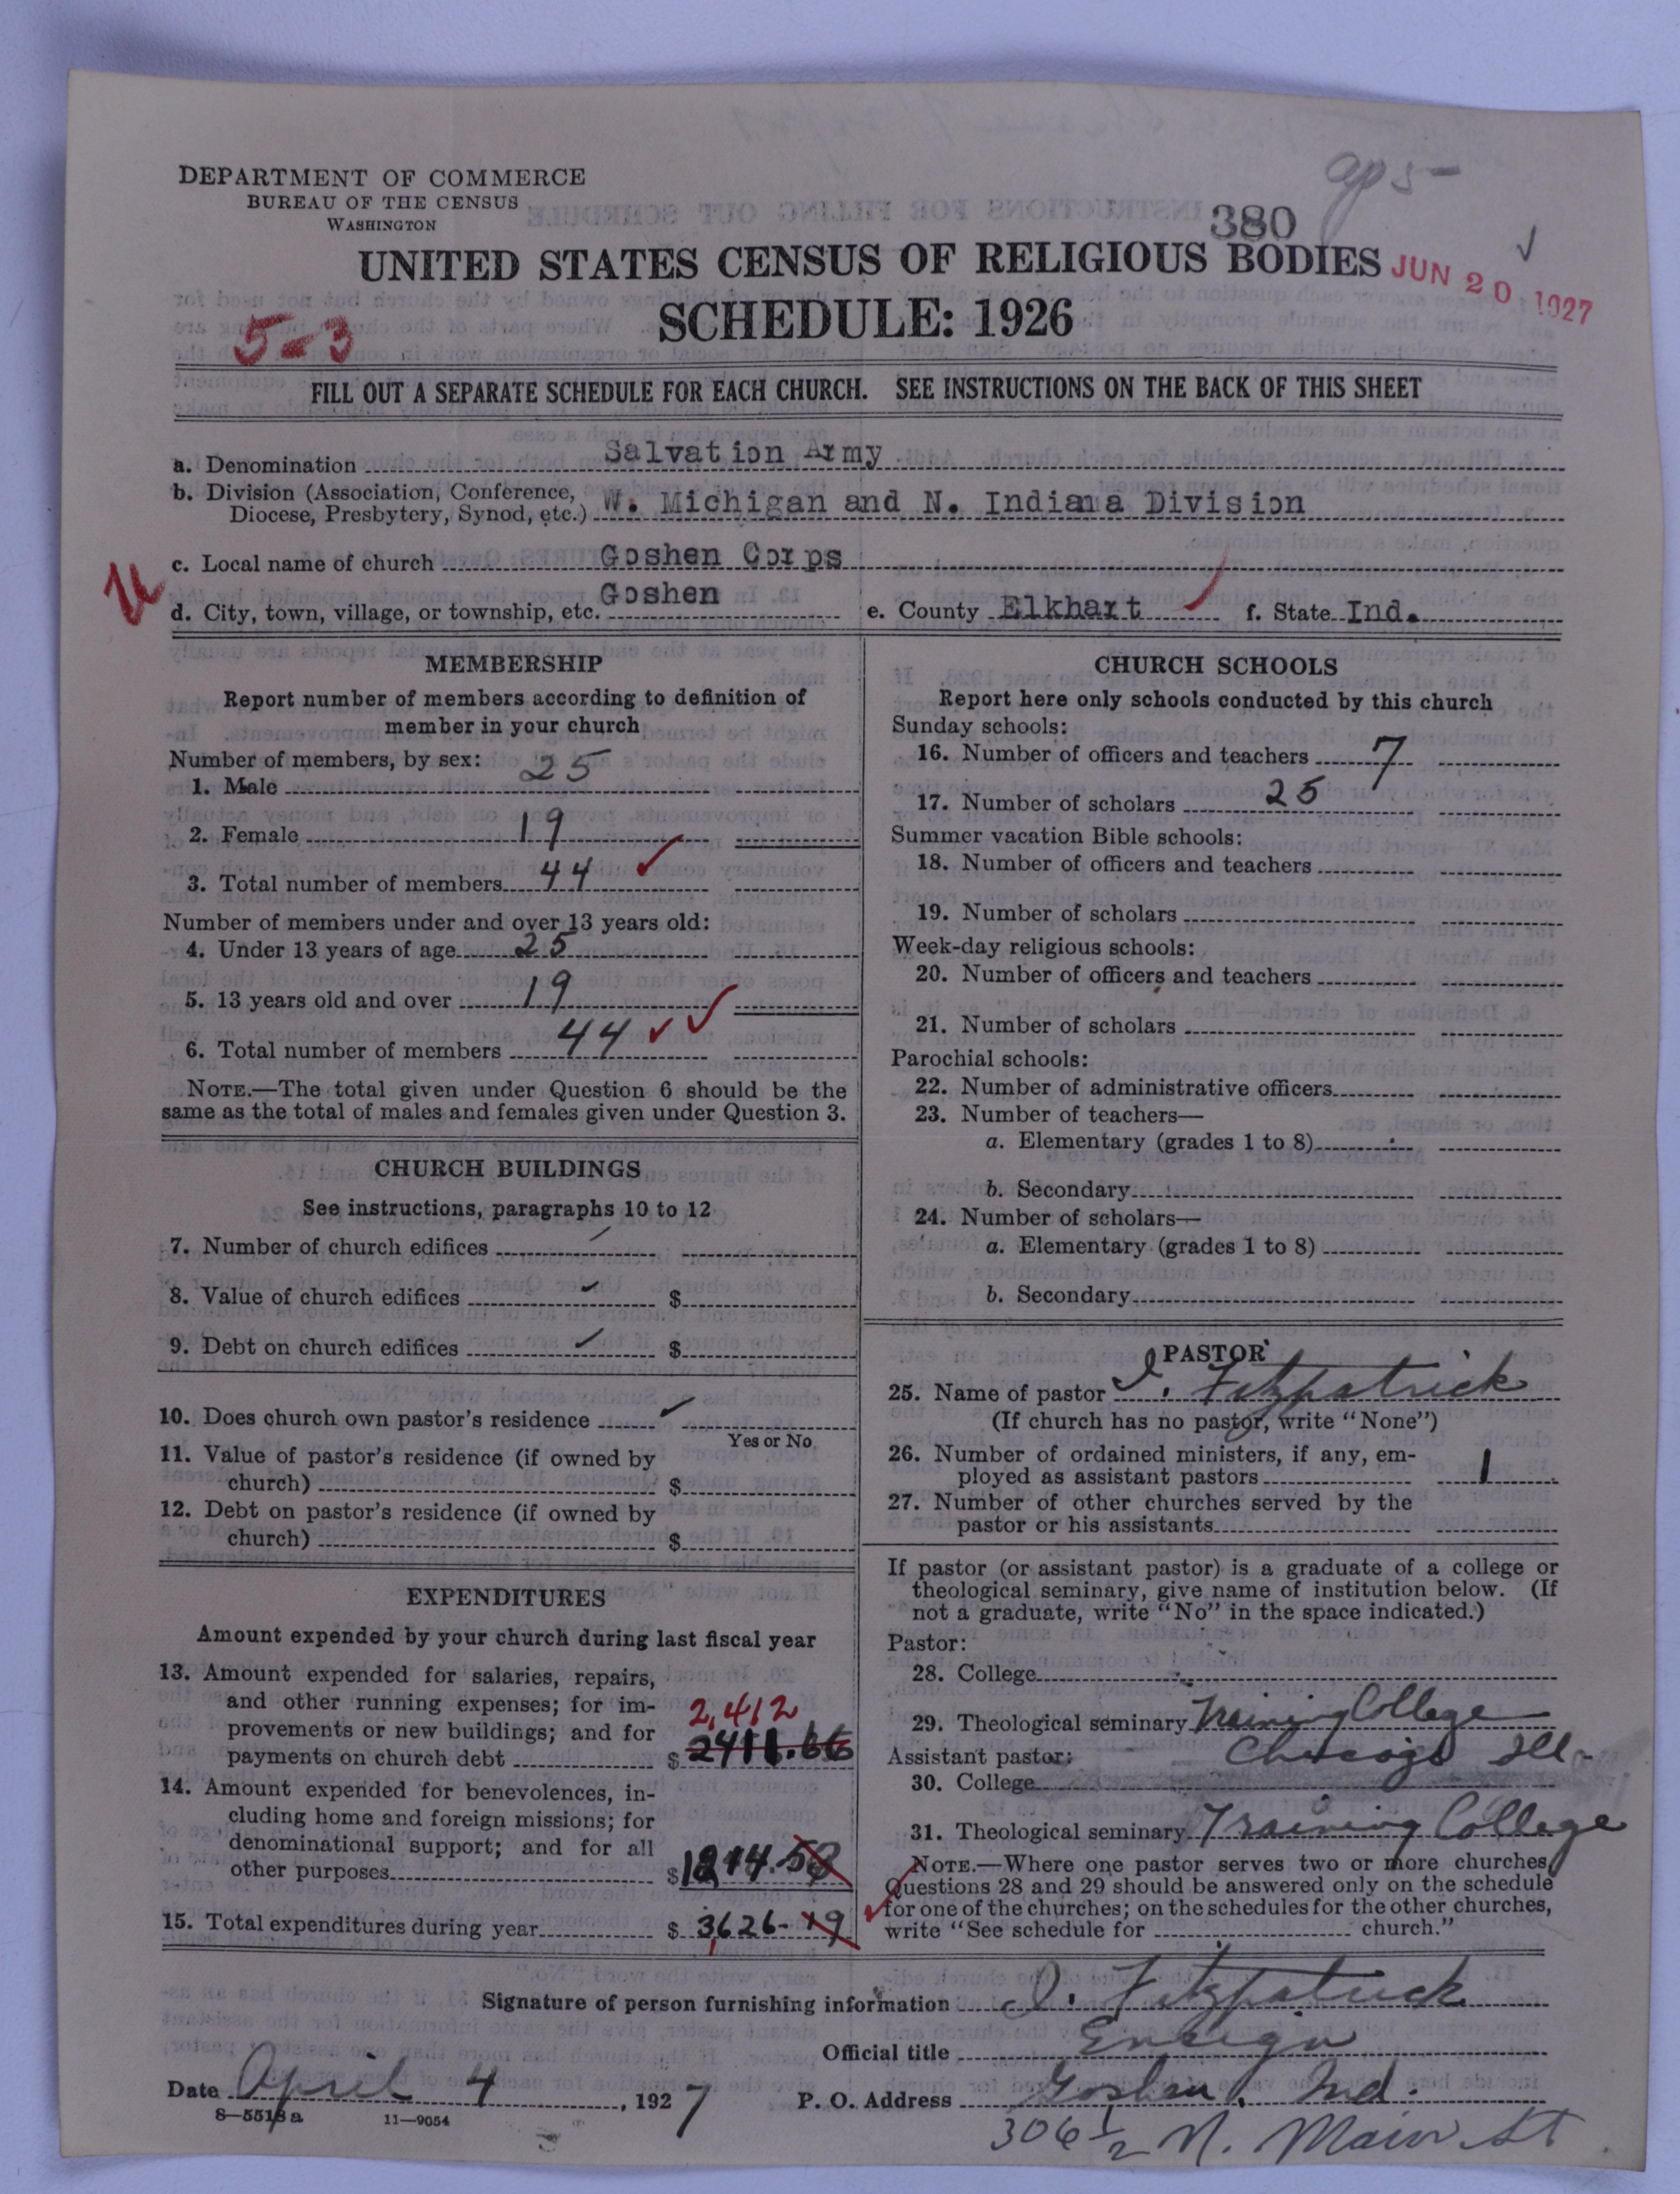 gps-
DEPARTMENT OF COMMERCE
BUREAU OF THE CENSUS
WASHINGTON
380
UNITED STATES CENSUS OF RELIGIOUS BODIES
JUN 20 1927
SCHEDULE: 1926
5-3
FILL OUT A SEPARATE SCHEDULE FOR EACH CHURCH. SEE INSTRUCTIONS ON THE BACK OF THIS SHEET
a. Denomination Salvation Army
b. Division (Association, Conference,
Diocese, Presbytery, Synod, etc.) W. Michigan and N. Indiana Division
c. Local name of church Goshen Corps
d. City, town, village, or township, etc. Goshen e. County Elkhart f. State Ind.
MEMBERSHIP
Report number of members according to definition of
member in your church
Number of members, by sex:
1. Male 25
2. Female 19
3. Total number of members 44
Number of members under and over 13 years old:
4. Under 13 years of age 25
5. 13 years old and over 19
6. Total number of members 44
NOTE.—The total given under Question 6 should be the
same as the total of males and females given under Question 3.
CHURCH BUILDINGS
See instructions, paragraphs 10 to 12
7. Number of church edifices
8. Value of church edifices $
9. Debt on church edifices $
10. Does church own pastor's residence
Yes or No
11. Value of pastor's residence (if owned by
church) $
12. Debt on pastor's residence (if owned by
church) $
EXPENDITURES
Amount expended by your church during last fiscal year
13. Amount expended for salaries, repairs,
and other running expenses; for im-
provements or new buildings; and for 2,412
payments on church debt $ 2411.66
14. Amount expended for benevolences, in-
cluding home and foreign missions; for
denominational support; and for all
other purposes $ 1214.53
15. Total expenditures during year $ 3,626.19
CHURCH SCHOOLS
Report here only schools conducted by this church
Sunday schools:
16. Number of officers and teachers 7
17. Number of scholars 25
Summer vacation Bible schools:
18. Number of officers and teachers
19. Number of scholars
Week-day religious schools:
20. Number of officers and teachers
21. Number of scholars
Parochial schools:
22. Number of administrative officers
23. Number of teachers—
a. Elementary (grades 1 to 8)
b. Secondary
24. Number of scholars—
a. Elementary (grades 1 to 8)
b. Secondary
PASTOR
25. Name of pastor I. Fitzpatrick
(If church has no pastor, write "None")
26. Number of ordained ministers, if any, em-
ployed as assistant pastors 1
27. Number of other churches served by the
pastor or his assistants
If pastor (or assistant pastor) is a graduate of a college or
theological seminary, give name of institution below. (If
not a graduate, write "No" in the space indicated.)
Pastor:
28. College
29. Theological seminary Training College
Assistant pastor: Chicago Ill-
30. College
31. Theological seminary Training College
NOTE.—Where one pastor serves two or more churches,
Questions 28 and 29 should be answered only on the schedule
for one of the churches; on the schedules for the other churches,
write "See schedule for church."
Signature of person furnishing information I. Fitzpatrick
Official title Ensign
Date April 4, 1927 P. O. Address Goshen, Ind.
8-5518a 11-9054
306 1/2 N. Main St